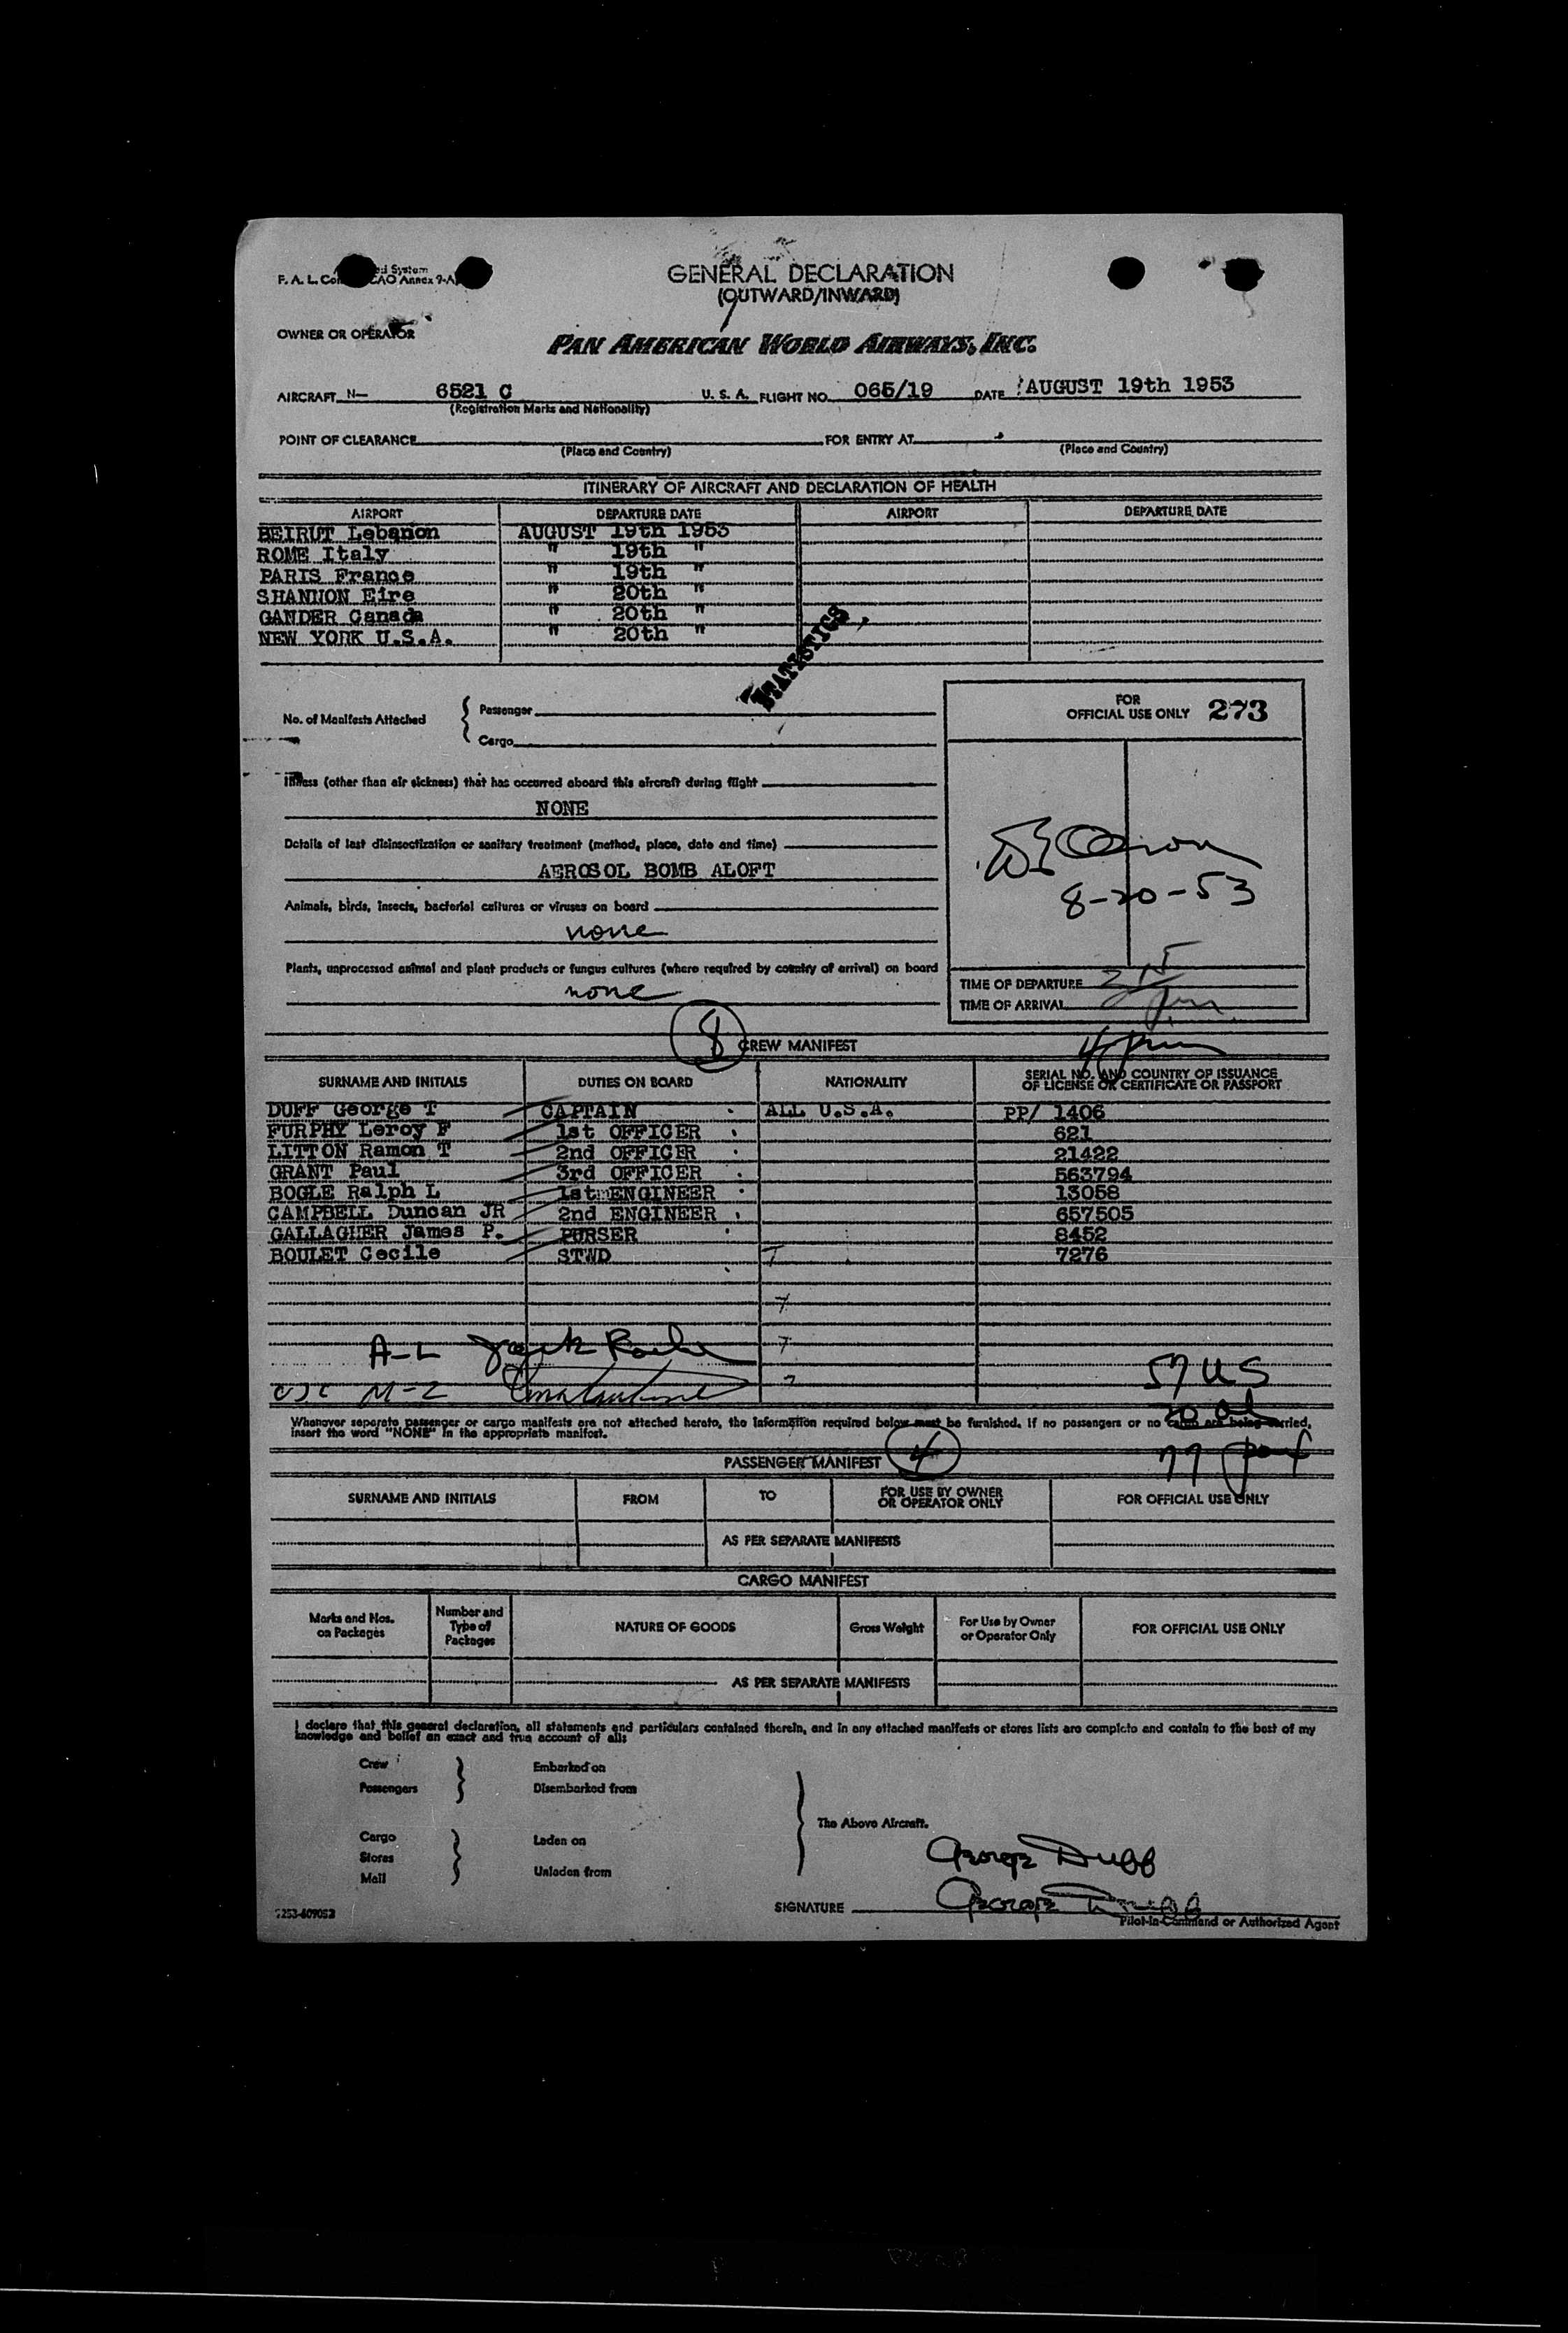 GENERAL DECLARATION
(OUTWARD/INWARD)
OWNER OR OPERATOR
PAN AMERICAN WORLD AIRWAYS, INC.
AIRCRAFT N- 6521 C U. S. A. FLIGHT NO. 065/19 DATE AUGUST 19th 1953
(Registration Marks and Nationality)
POINT OF CLEARANCE FOR ENTRY AT
(Place and Country) (Place and Country)
ITINERARY OF AIRCRAFT AND DECLARATION OF HEALTH
AIRPORT DEPARTURE DATE AIRPORT DEPARTURE DATE
BEIRUT Lebanon AUGUST 19th 1953
ROME Italy " 19th "
PARIS France " 19th "
SHANNON Eire " 20th "
GANDER Canada " 20th "
NEW YORK U.S.A. " 20th "
STATISTICS
No. of Manifests Attached { Passenger
Cargo
FOR
OFFICIAL USE ONLY 273
Illness (other than air sickness) that has occurred aboard this aircraft during flight
NONE
Details of last disinsectization or sanitary treatment (method, place, date and time)
AEROSOL BOMB ALOFT
8-20-53
Animals, birds, insects, bacterial cultures or viruses on board
none
Plants, unprocessed animal and plant products or fungus cultures (where required by country of arrival) on board
none
TIME OF DEPARTURE
TIME OF ARRIVAL
8 CREW MANIFEST
SURNAME AND INITIALS DUTIES ON BOARD NATIONALITY SERIAL NO. AND COUNTRY OF ISSUANCE
OF LICENSE OR CERTIFICATE OR PASSPORT
DUFF George T CAPTAIN ALL U.S.A. PP/ 1406
FURPHY Leroy F 1st OFFICER 621
LITTON Ramon T 2nd OFFICER 21422
GRANT Paul 3rd OFFICER 563794
BOGLE Ralph L 1st ENGINEER 13058
CAMPBELL Duncan JR 2nd ENGINEER 657505
GALLAGHER James P. PURSER 8452
BOULET Cecile STWD 7276
A-L
M-2
57 US
Whenever separate passenger or cargo manifests are not attached hereto, the information required below must be furnished. If no passengers or no cargo are being carried,
insert the word "NONE" in the appropriate manifest.
77
PASSENGER MANIFEST 4
SURNAME AND INITIALS FROM TO FOR USE BY OWNER
OR OPERATOR ONLY FOR OFFICIAL USE ONLY
AS PER SEPARATE MANIFESTS
CARGO MANIFEST
Marks and Nos.
on Packages Number and
Type of
Packages NATURE OF GOODS Gross Weight For Use by Owner
or Operator Only FOR OFFICIAL USE ONLY
AS PER SEPARATE MANIFESTS
I declare that this general declaration, all statements and particulars contained therein, and in any attached manifests or stores lists are complete and contain to the best of my
knowledge and belief an exact and true account of all:
Crew Embarked on
Passengers Disembarked from
The Above Aircraft.
Cargo Laden on
Stores
Mail Unladen from
George Duff
SIGNATURE George Duff
Pilot-in-Command or Authorized Agent